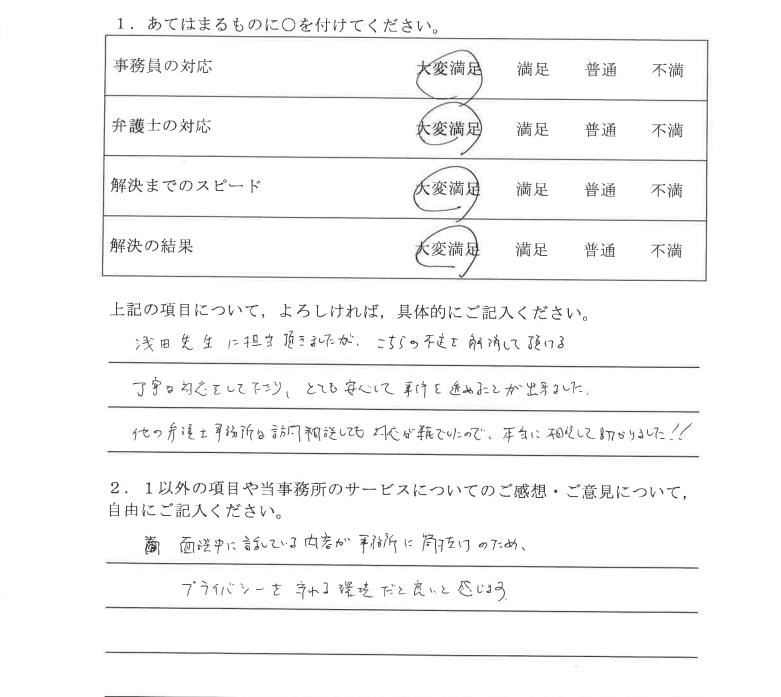 1．あてはまるものに○を付けてください。
事務員の対応 大変満足 満足 普通 不満
弁護士の対応 大変満足 満足 普通 不満
解決までのスピード 大変満足 満足 普通 不満
解決の結果 大変満足 満足 普通 不満
上記の項目について，よろしければ，具体的にご記入ください。
浅田先生に担当頂きましたが、こちらの不安を解消して頂ける
丁寧な対応をして下さり、とても安心して事件を進めることが出来ました。
他の弁護士事務所は訪問相談しても対応が雑でしたので、本当に相談して助かりました!!
2．1以外の項目や当事務所のサービスについてのご感想・ご意見について，
自由にご記入ください。
面談中に話している内容が事務所に筒抜けのため、
プライバシーを守れる環境だと良いと感じます。